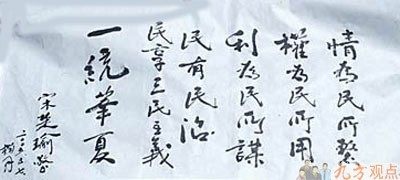 情為民所繫
權為民所用
利為民所謀
民有民治
民享三民主義
一統華夏
宋楚瑜敬
二〇〇五五七
九方观点